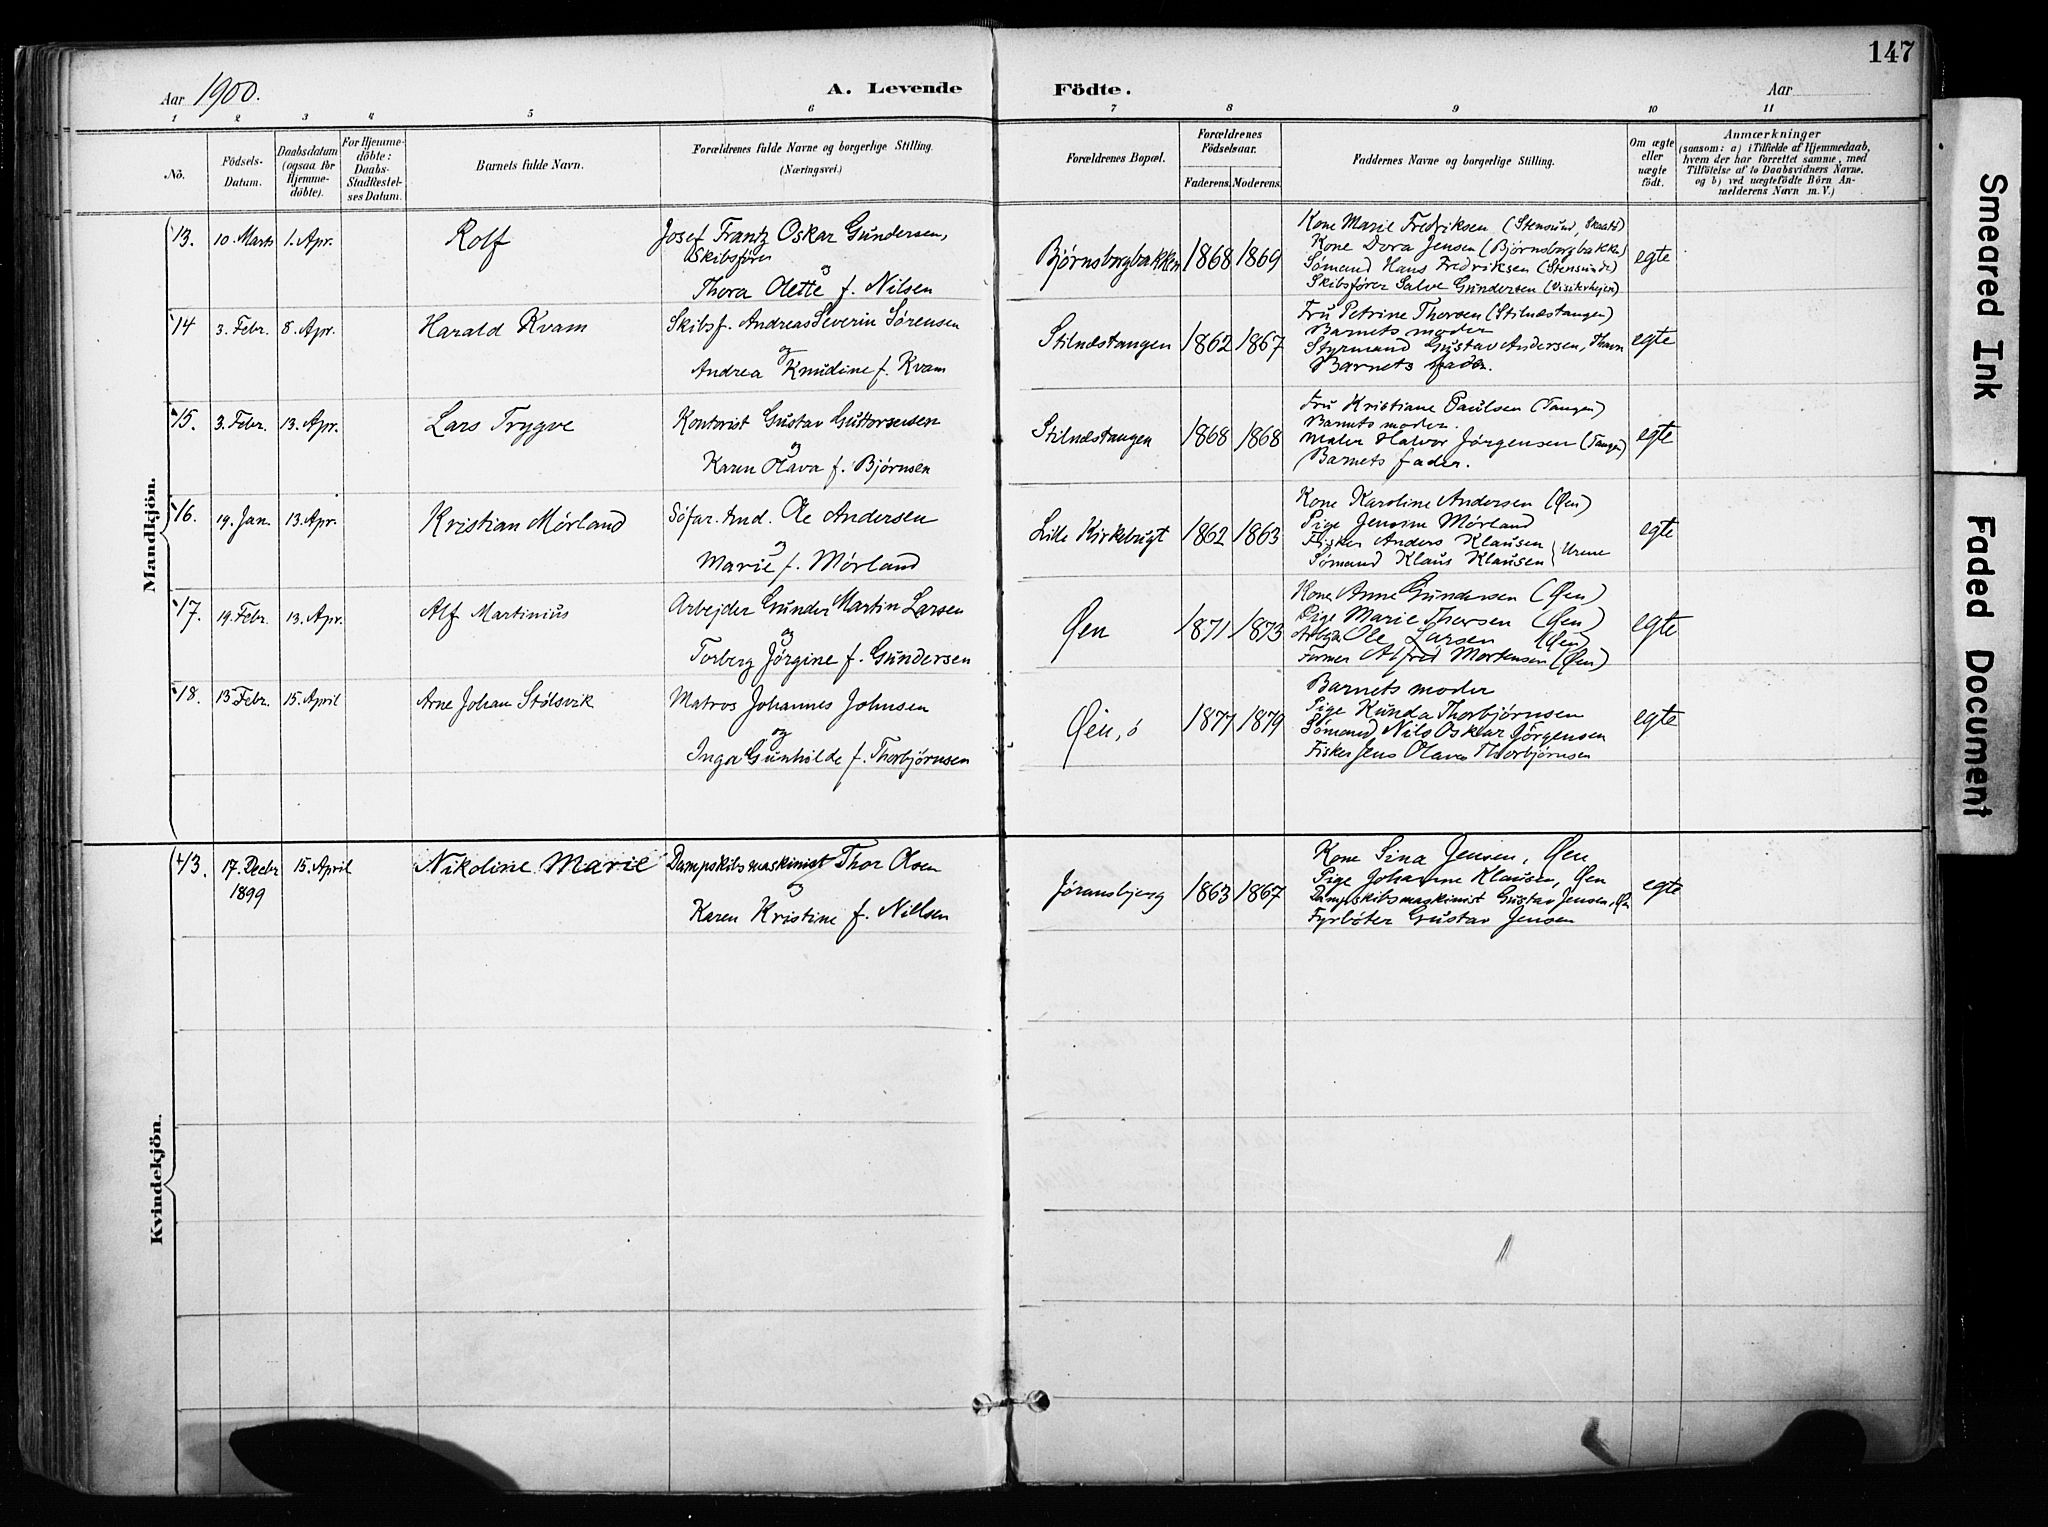 147
Aar 1900.
A. Levende Födte.
Aar
1 2 3 4 5 6 7 8 9 10 11
No.
Födsels-
Datum.
Daabsdatum
(ogsaa for
Hjemme-
döbte).
For Hjemme-
döbte:
Daabs-
Stadfæstel-
ses Datum.
Barnets fulde Navn.
Forældrenes fulde Navne og borgerlige Stilling.
(Næringsvei.)
Forældrenes Bopæl.
Forældrenes
Födselsaar.
Faderens. Moderens.
Faddernes Navne og borgerlige Stilling.
Om ægte
eller
uægte
født.
Anmærkninger
(saasom: a) i Tilfælde af Hjemmedaab,
hvem der har forrettet samme, med
Tilföielse af to Daabsvidners Navne,
og b) ved uægtefödte Börn An-
melderens Navn m. V.)
Mandkjön.
13. 10. Marts 1. Apr. Rolf
Josef Frantz Oskar Gundersen,
Skibsfører
og
Thora Olette f. Nilsen
Bjørnsborgbakken 1868 1869
Kone Marie Fredriksen (Stensund,
Kone Dora Jensen (Bjørnsborgbakken)
Sømand Hans Fredriksen (Stensund)
Skibsfører Salve Gundersen
egte
14 3. Febr. 8. Apr. Harald Kvam
Skibsf. Andreas Severin Sørensen
og
Andrea Knudine f. Kvam
Stilnæstangen 1862 1867
Fru Petrine Thorsen (Stilnæstangen)
Barnets moder
Styrmand Gustav Andersen,
Barnets fader.
egte
15. 3. Febr. 13. Apr. Lars Trygve
Kontorist Gustav Guttormsen
og
Karen Olava f. Bjørnsen
Stilnæstangen 1868 1868
Fru Kristiane Paulsen (Tangen)
Barnets moder.
Maler Halvor Jørgensen (Tangen)
Barnets fader.
egte
16. 19. Jan. 13. Apr. Kristian Mørland
Søfar. Ole Andersen
og
Marie f. Mørland
Lille Kirkebugt 1862 1863
Kone Karoline Andersen (Øen)
Pige Jensine Mørland
Fisker Anders Klausen
Sømand Klaus Klausen } Urene
egte
17. 19. Febr. 13. Apr. Alf Martinius
Arbejder Gunder Martin Larsen
og
Torberg Jørgine f. Gundersen
Øen 1871 1873
Kone Anne Gundersen (Øen)
Pige Marie Thorsen (Øen)
Arbejder Ole Larsen (Øen)
Former Alfred Mortensen (Øen)
egte
18. 13 Febr. 15. April Arne Johan Stølsvik
Matros Johannes Johnsen
og
Inga Gunhilde f. Thorbjørnsen
Øen, 1877 1879
Barnets moder
Pige Kunda Thorbjørnsen
Sømand Nils Oskar Jørgensen
Fisker Jens Olaves Thorbjørnsen
egte
Kvindekjön.
13. 17. Decbr
1899
15. April Nikoline Marie
Dampskibsmaskinist Thor Olsen
og
Karen Kristine f. Nilsen
Jøransbjerg 1863 1867
Kone Sina Jensen, Øen
Pige Johanne Klausen, Øen
Dampskibsmaskinist Gustav Jensen, Øen
Fyrbøter Gustav Jensen
egte
Smeared Ink
Faded Document